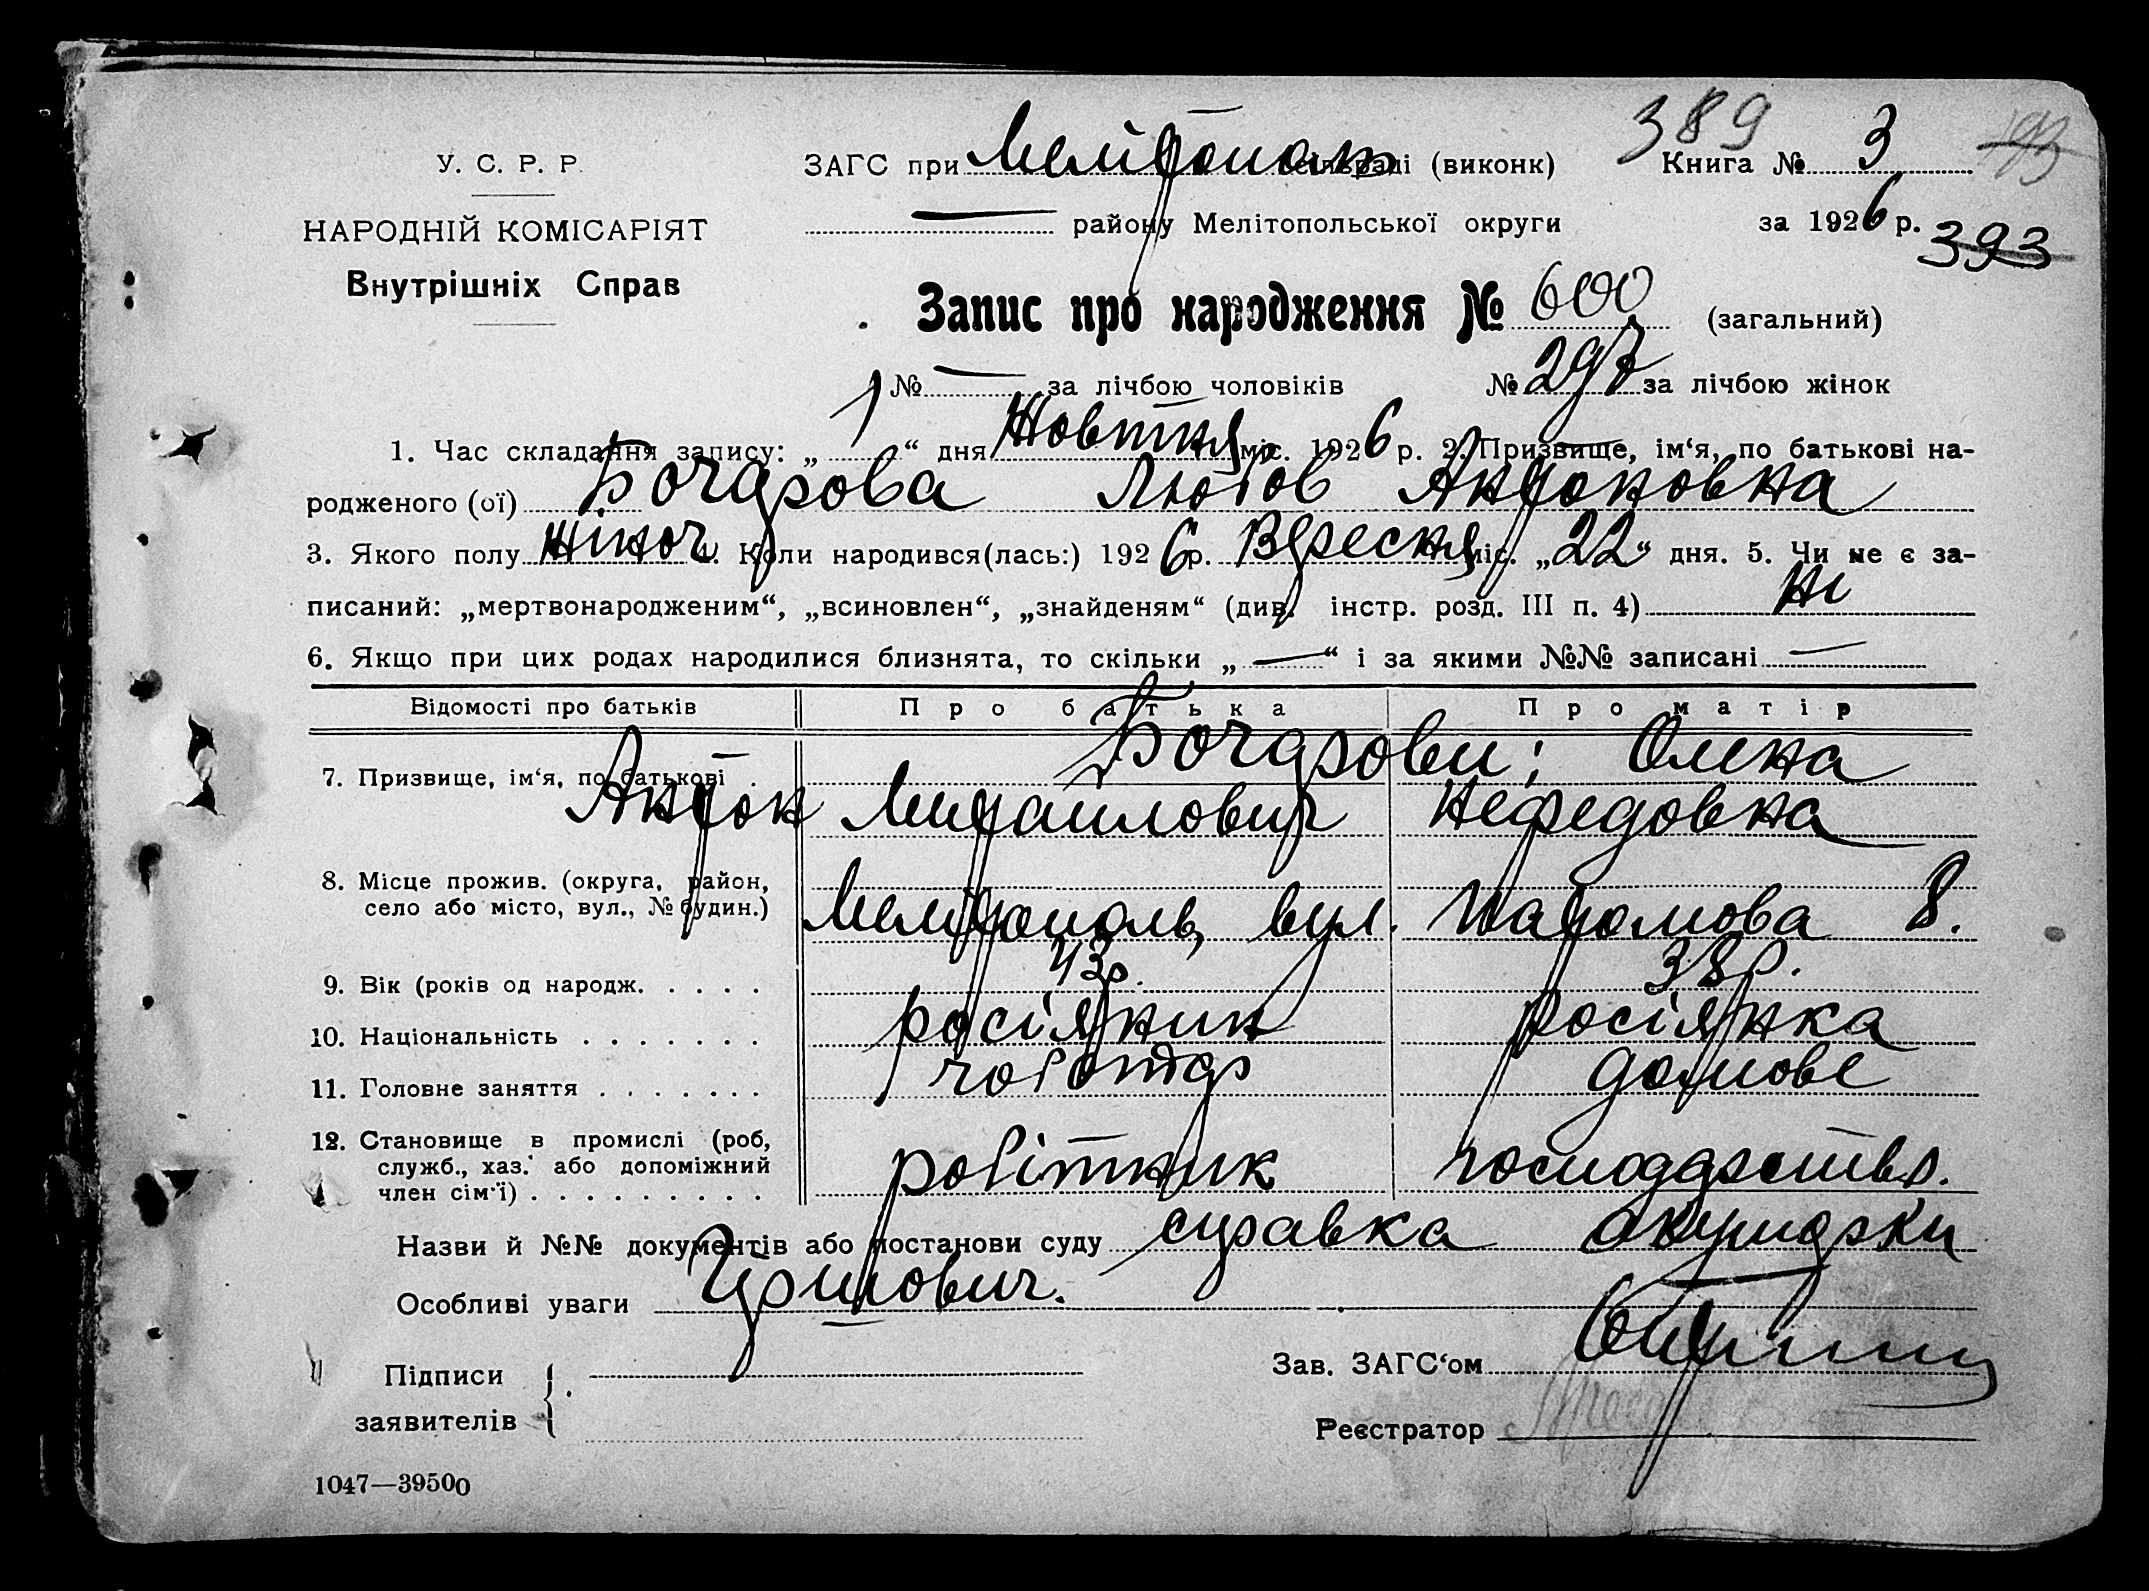 389
У. С. Р. Р. ЗАГС при Мелітополь сільраді (виконк) Книга № 3
НАРОДНІЙ КОМІСАРІЯТ — району Мелітопольської округи за 1926 р. 393
Внутрішніх Справ
Запис про народження № 600 (загальний)
№ — за лічбою чоловіків № 297 за лічбою жінок
1. Час складання запису: „ 1 “ дня Жовтня міс. 1926 р. 2. Призвище, ім‘я, по батькові на-
родженого (ої) Бочарова Любов Антоновна
3. Якого полу жіноч. 4. Коли народився(лась:) 1926 р. Вересня міс. „22“ дня. 5. Чи не є за-
писаний: „мертвонародженим“, „всиновлен“, „знайденям“ (див. інстр. розд. III п. 4) Ні
6. Якщо при цих родах народилися близнята, то скільки „ — “ і за якими №№ записані —
Відомості про батьків Про батька Про матір
Бочарови: Олена
7. Призвище, ім‘я, по батькові
Антон Михайлович Нефедовна
8. Місце прожив. (округа, район,
село або місто, вул., № будин.) Мелітополь, вул. 8.
9. Вік (років од народж. 43р. 38р.
10. Національність росіянин росіянка
11. Головне заняття чоботар домове
12. Становище в промислі (роб,
служб., хаз. або допоміжний робітник господарство.
член сім‘ї)
Назви й №№ документів або постанови суду справка акушерки
Особливі уваги
Підписи Зав. ЗАГС‘ом
заявителів Реєстратор
1047—39500